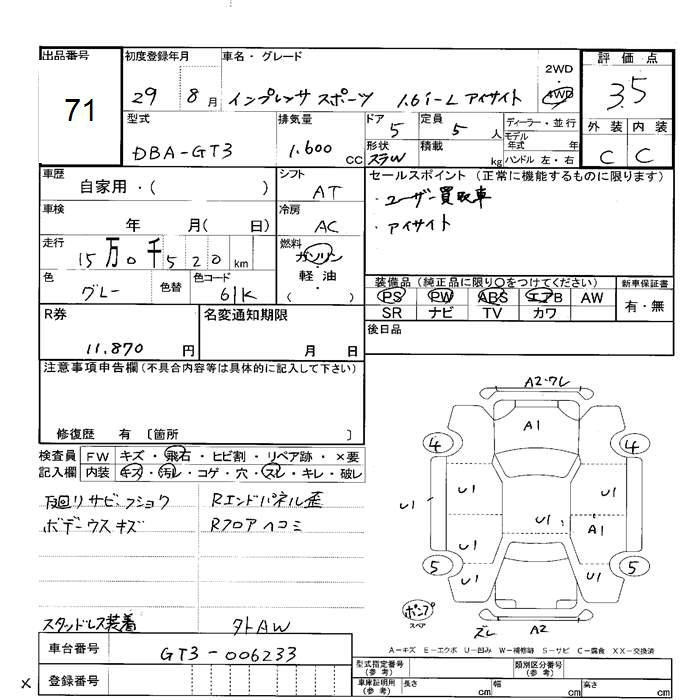 出品番号 初度登録年月 車名・グレード 2WD ・ 4WD 評価点
71 29年 8月 インプレッサ スポーツ 1.6i-L アイサイト 3.5
型式 排気量 ドア 定員 ディーラー・並行 外装 内装
DBA-GT3 1.600 CC 5 5 人 モデル年式 年 C C
形状 積載 kg ハンドル 左・右
車歴 シフト セールスポイント (正常に機能するものに限ります)
自家用・( ) AT ・ユーザー買取車
車検 冷房 ・アイサイト
年 月( 日) AC
走行 燃料
15万0千520km ガソリン・軽油
( )
色 色替 色コード
グレー 61K
装備品 (純正品に限り○をつけてください) 新車保証書
PS PW ABS エアB AW 有・無
SR ナビ TV カワ
R券 名変通知期限 後日品
11.870 円 月 日
注意事項申告欄 (不具合内容等は具体的に記入して下さい)
修復歴 有 〔箇所 〕
検査員記入欄 FW キズ・飛石・ヒビ割・リペア跡・×要
内装 キズ・汚レ・コゲ・穴・スレ・キレ・破レ
下回リサビ・フショク Rエンドパネル歪
ボデーウスキズ Rフロアヘコミ
スタッドレス装着 外AW
A2・ワレ
A1
4 4
U1 U1 U1
U1 A1
5 U1 U1 5
ポンプ
スペア
ズレ A2
A-キズ E-エクボ U-凹み W-補修跡 S-サビ C-腐食 XX-交換済
車台番号 GT3-006233
× 登録番号
型式指定番号 (参考) 類別区分番号 (参考)
車庫証明用 (参考) 長さ cm 幅 cm 高さ cm